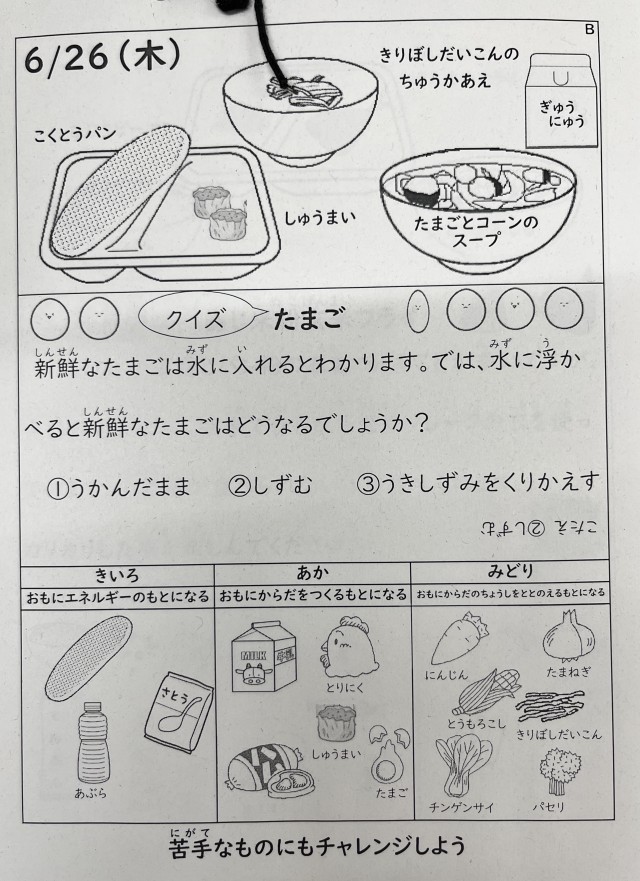 B
6/26(木)
きりぼしだいこんの
ちゅうかあえ
ぎゅう
にゅう
こくとうパン
しゅうまい
たまごとコーンの
スープ
クイズ
たまご
新鮮なたまごは水に入れるとわかります。では、水に浮か
しんせん みず い みず う
べると新鮮なたまごはどうなるでしょうか?
しんせん
①うかんだまま ②しずむ ③うきしずみをくりかえす
こたえ ②しずむ
きいろ
おもにエネルギーのもとになる
さとう
あぶら
あか
おもにからだをつくるもとになる
MILK
とりにく
しゅうまい
たまご
みどり
おもにからだのちょうしをととのえるもとになる
にんじん
たまねぎ
とうもろこし
きりぼしだいこん
チンゲンサイ
パセリ
苦手なものにもチャレンジしよう
にがて